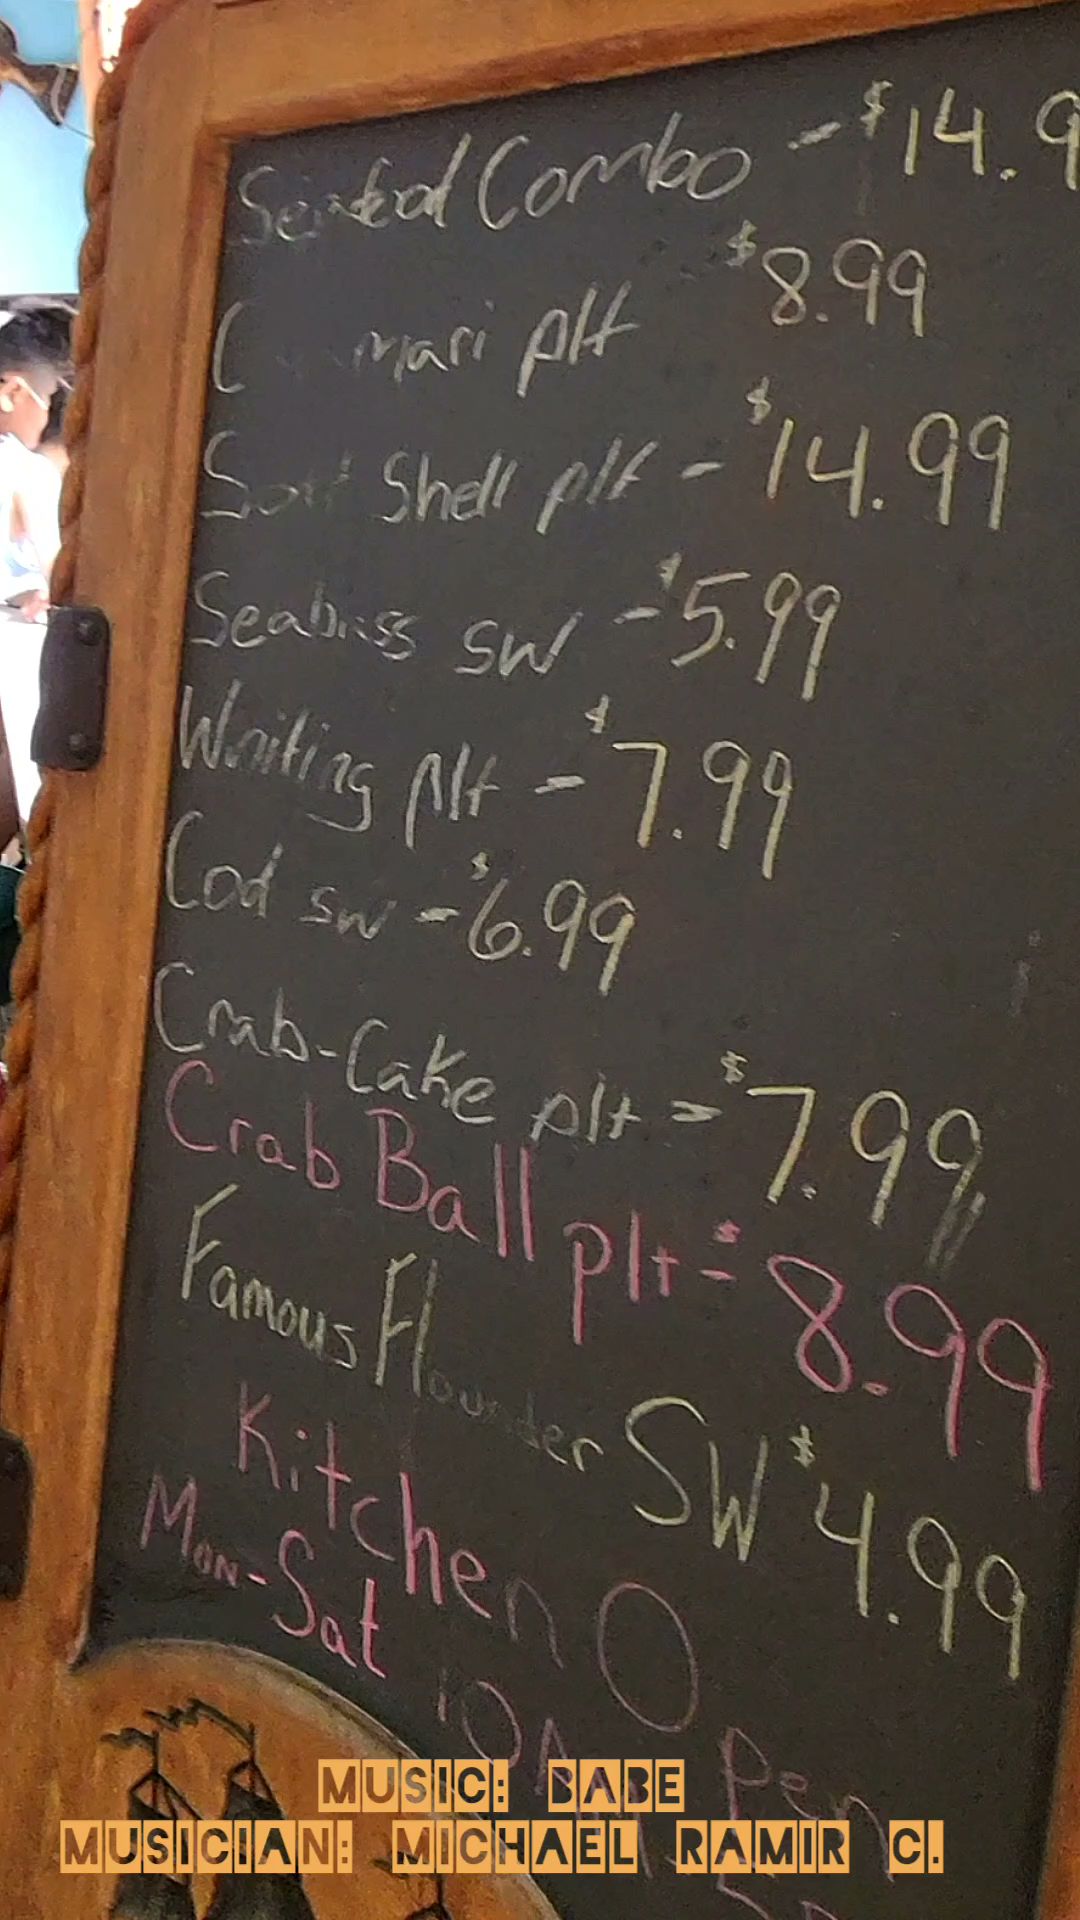 Seafood Combo - $14.9
mari plt $8.99
Soft Shell plt - $14.99
Seabass SW - $5.99
Whiting plt - $7.99
Cod SW - $6.99
Crab-Cake plt - $7.99
Crab Ball plt - $8.99
Famous Flounder SW $4.99
Kitchen Open
Mon-Sat 10AM
MUSIC: BABE
MUSICIAN: MICHAEL RAMIR C.